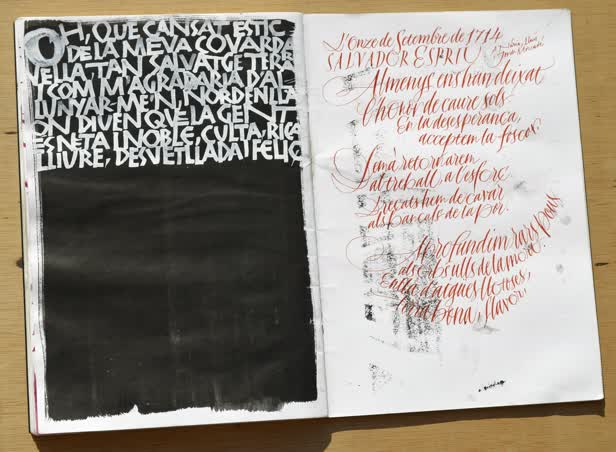 OH, QUE CANSAT ESTIC
DE LA MEVA COVARDA
VELLA, TAN SALVATGE TERRA
I COM M'AGRADARIA D'AL
LUNYAR-ME'N, NORD ENLLÀ
ON DIUEN QUE LA GENT
ÉS NETA I NOBLE, CULTA, RICA
LLIURE, DESVETLLADA I FELIÇ
L'Onze de Setembre de 1714
SALVADOR ESPRIU
Almenys ens han deixat
l'honor de caure sols
En la desesperança,
acceptem la foscor
Demà retornarem
al treball, a l'esforç.
Dreçats hem de cavar
als bancals de la por.
Aprofundim rars pous
als ulls de la mort:
Enllà d'aigües lloses,
font bona, llavor.